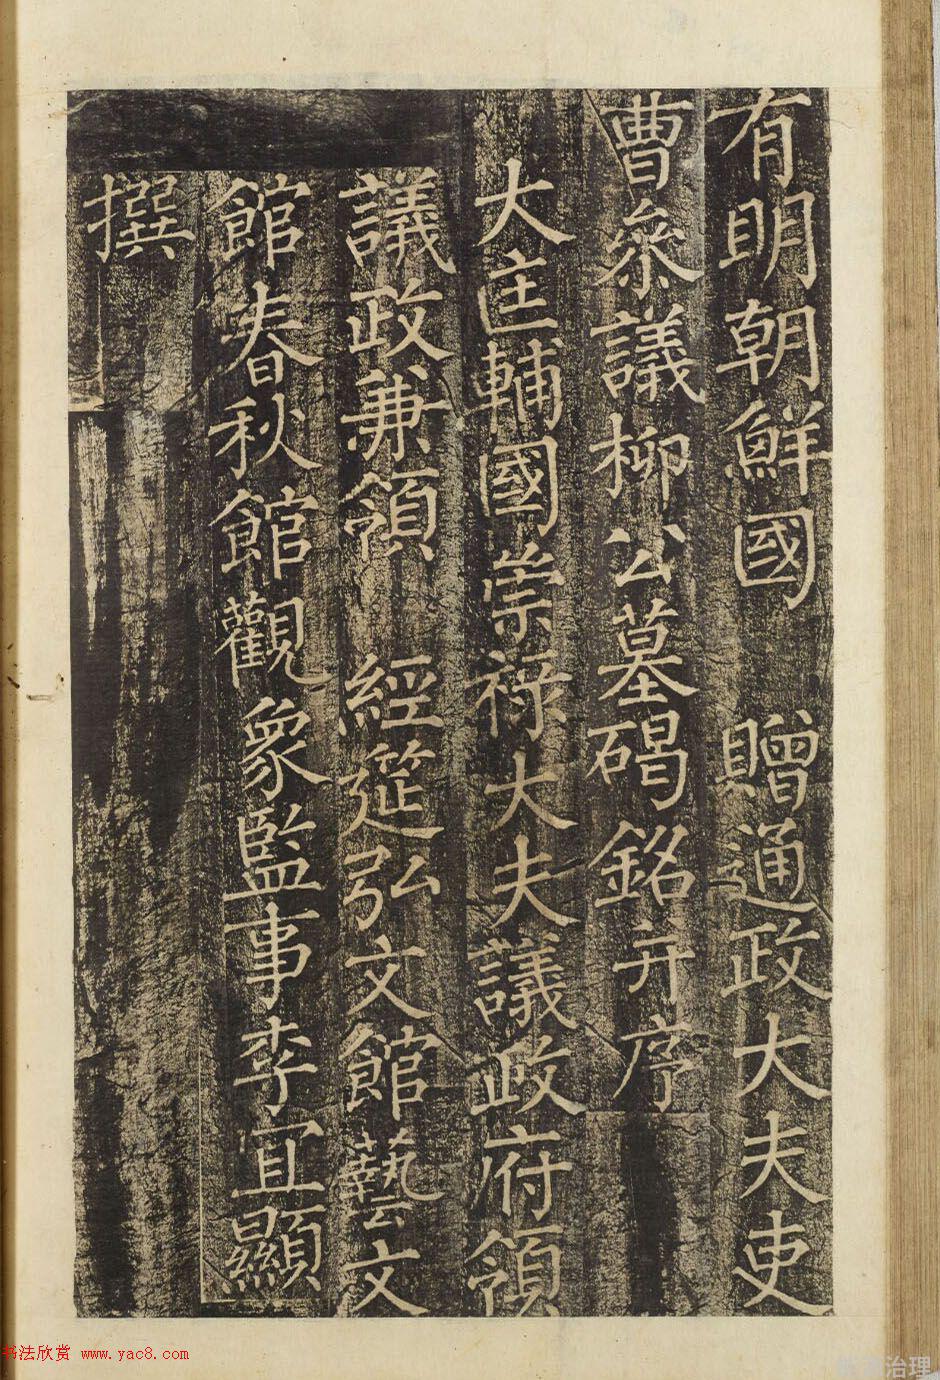 有明朝鮮國 贈通政大夫吏
曹叅議柳公墓碣銘并序
大匡輔國崇祿大夫議政府領
議政兼領 經筵弘文館藝文
館春秋館觀象監事李宜顯
撰
书法欣赏 www.yac8.com